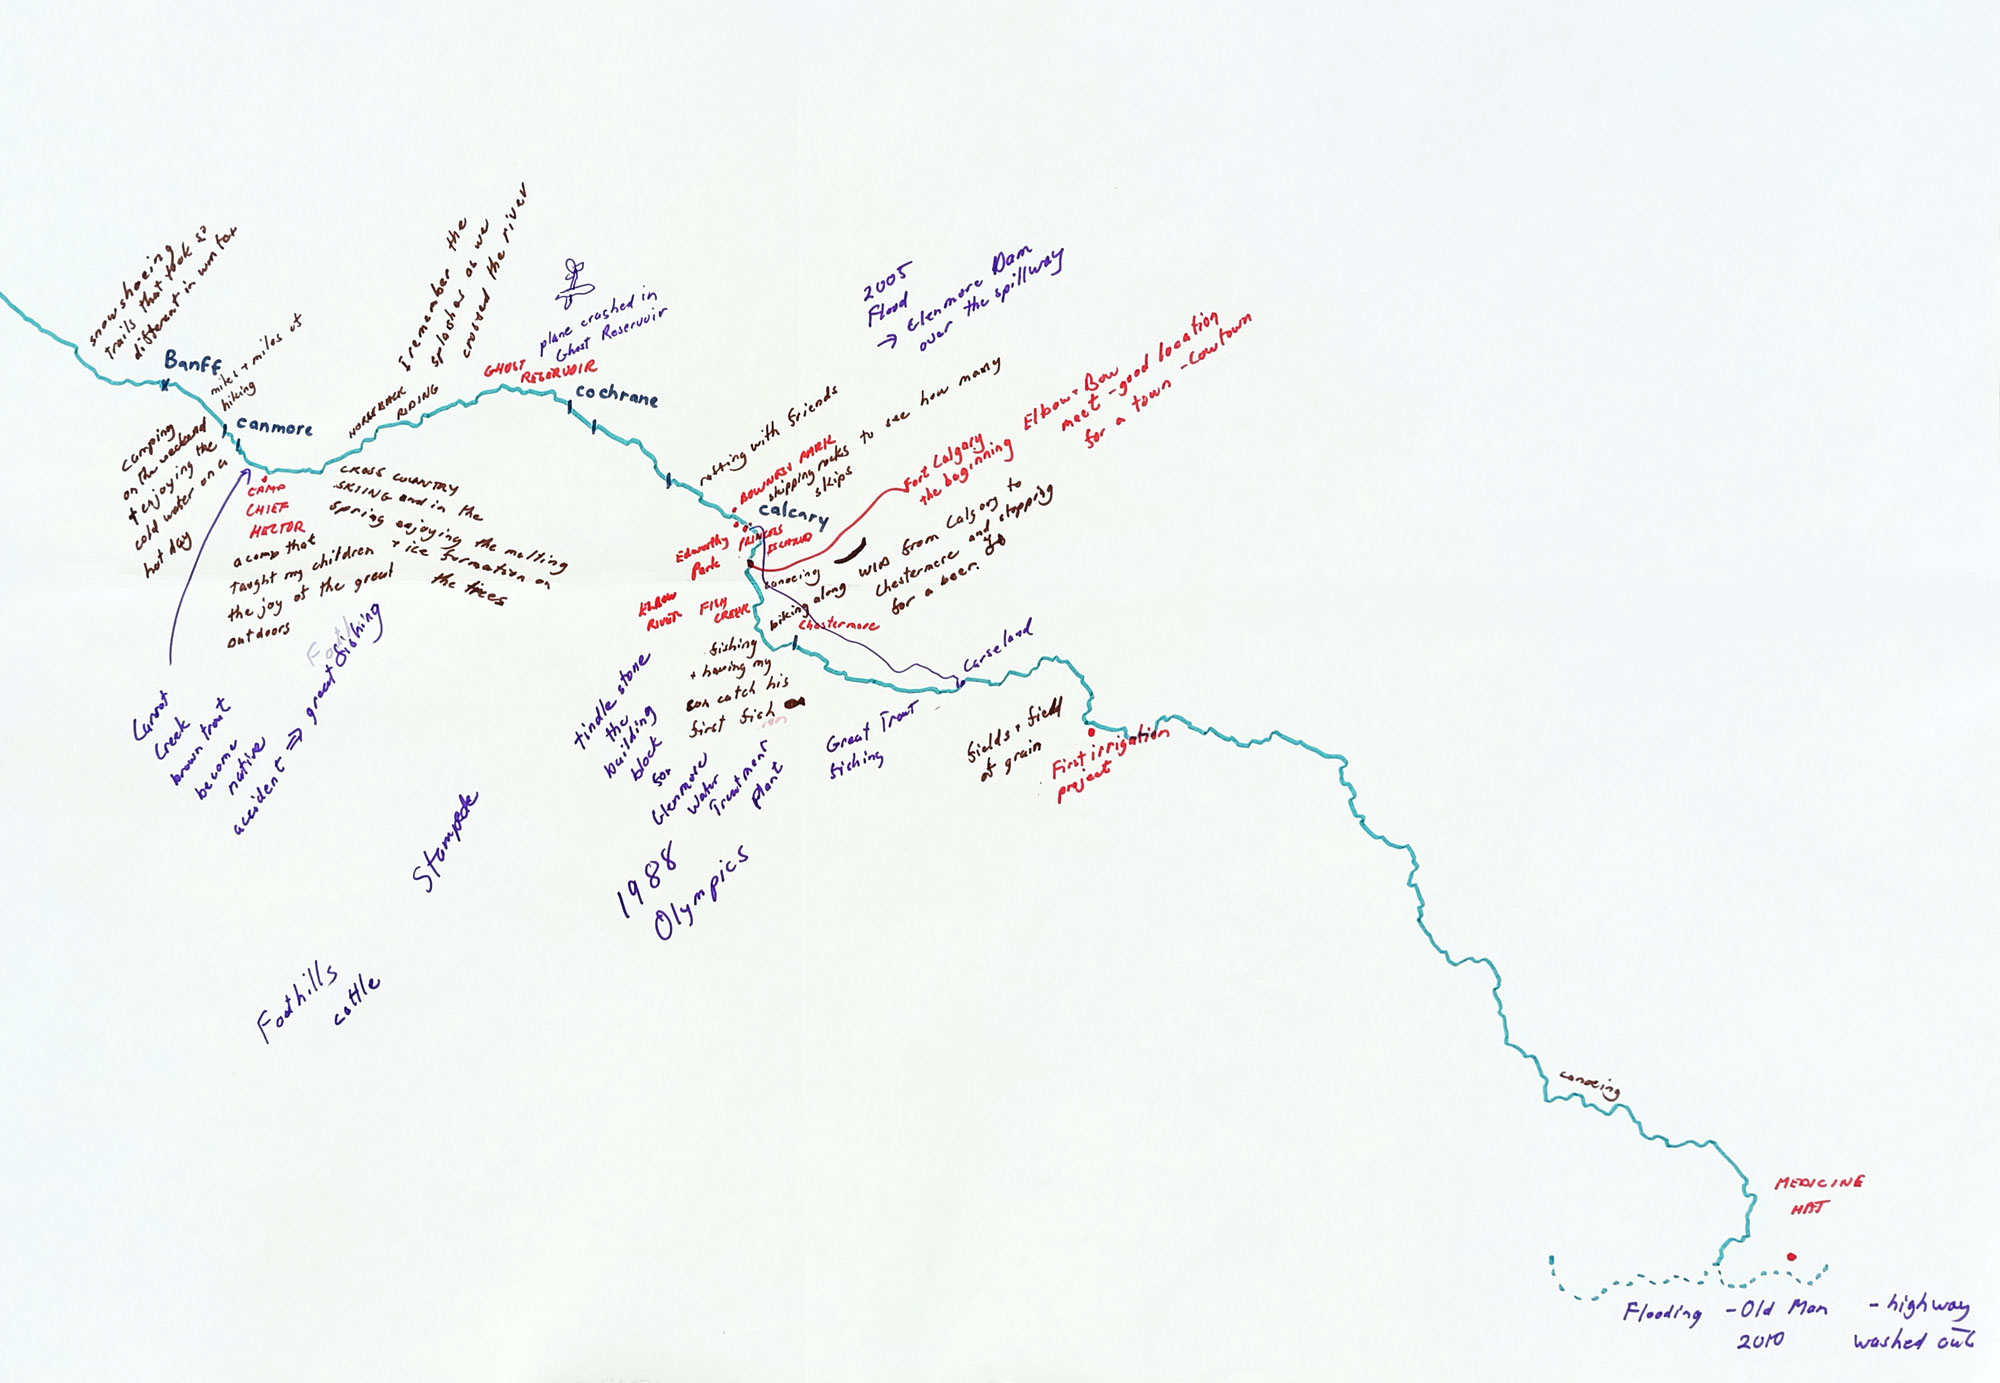 snowshoeing
trails that took so
different in winter
Banff
miles + miles of
hiking
canmore
camping
on the weekend
+ enjoying the
cold water on a
hot day
HORSEBACK
RIDING
I remember the
splashes as we
crossed the river
GHOST
RESERVOIR
plane crashed in
Ghost Reservoir
cochrane
2005
Flood
→ Glenmore Dam
over the spillway
CAMP
CHIEF
HECTOR
a camp that
taught my children
the joy of the great
outdoors
CROSS COUNTRY
SKIING and in the
spring enjoying the melting
+ ice formation on
the trees
rafting with friends
BOWNESS PARK
skipping rocks to see how many
skips
calgary
Edworthy
Park
PRINCES
ISLAND
Fort Calgary
the beginning
Elbow + Bow
meet - good location
for a town - Cowtown
canoeing
biking along WID from Calgary to
Chestermere and stopping
for a beer.
ELBOW
RIVER
FISH
CREEK
Chestermere
fishing
+ having my
son catch his
first fish
tindle stone
the
building
block
for
Glenmore
Water
Treatment
Plant
Carseland
Great Trout
fishing
fields + field
of grain
First irrigation
project
Carrot
Creek
brown trout
become
native
accident ⇒ great fishing
Stampede
1988
Olympics
Foothills
cattle
canoeing
MEDICINE
HAT
Flooding - Old Man - highway
2010 washed out